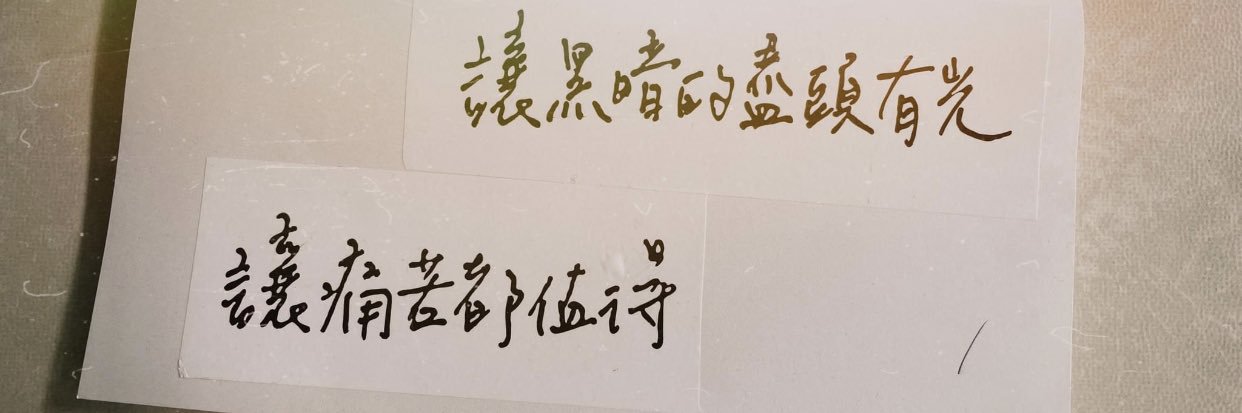 讓黑暗的盡頭有光
讓痛苦都值得